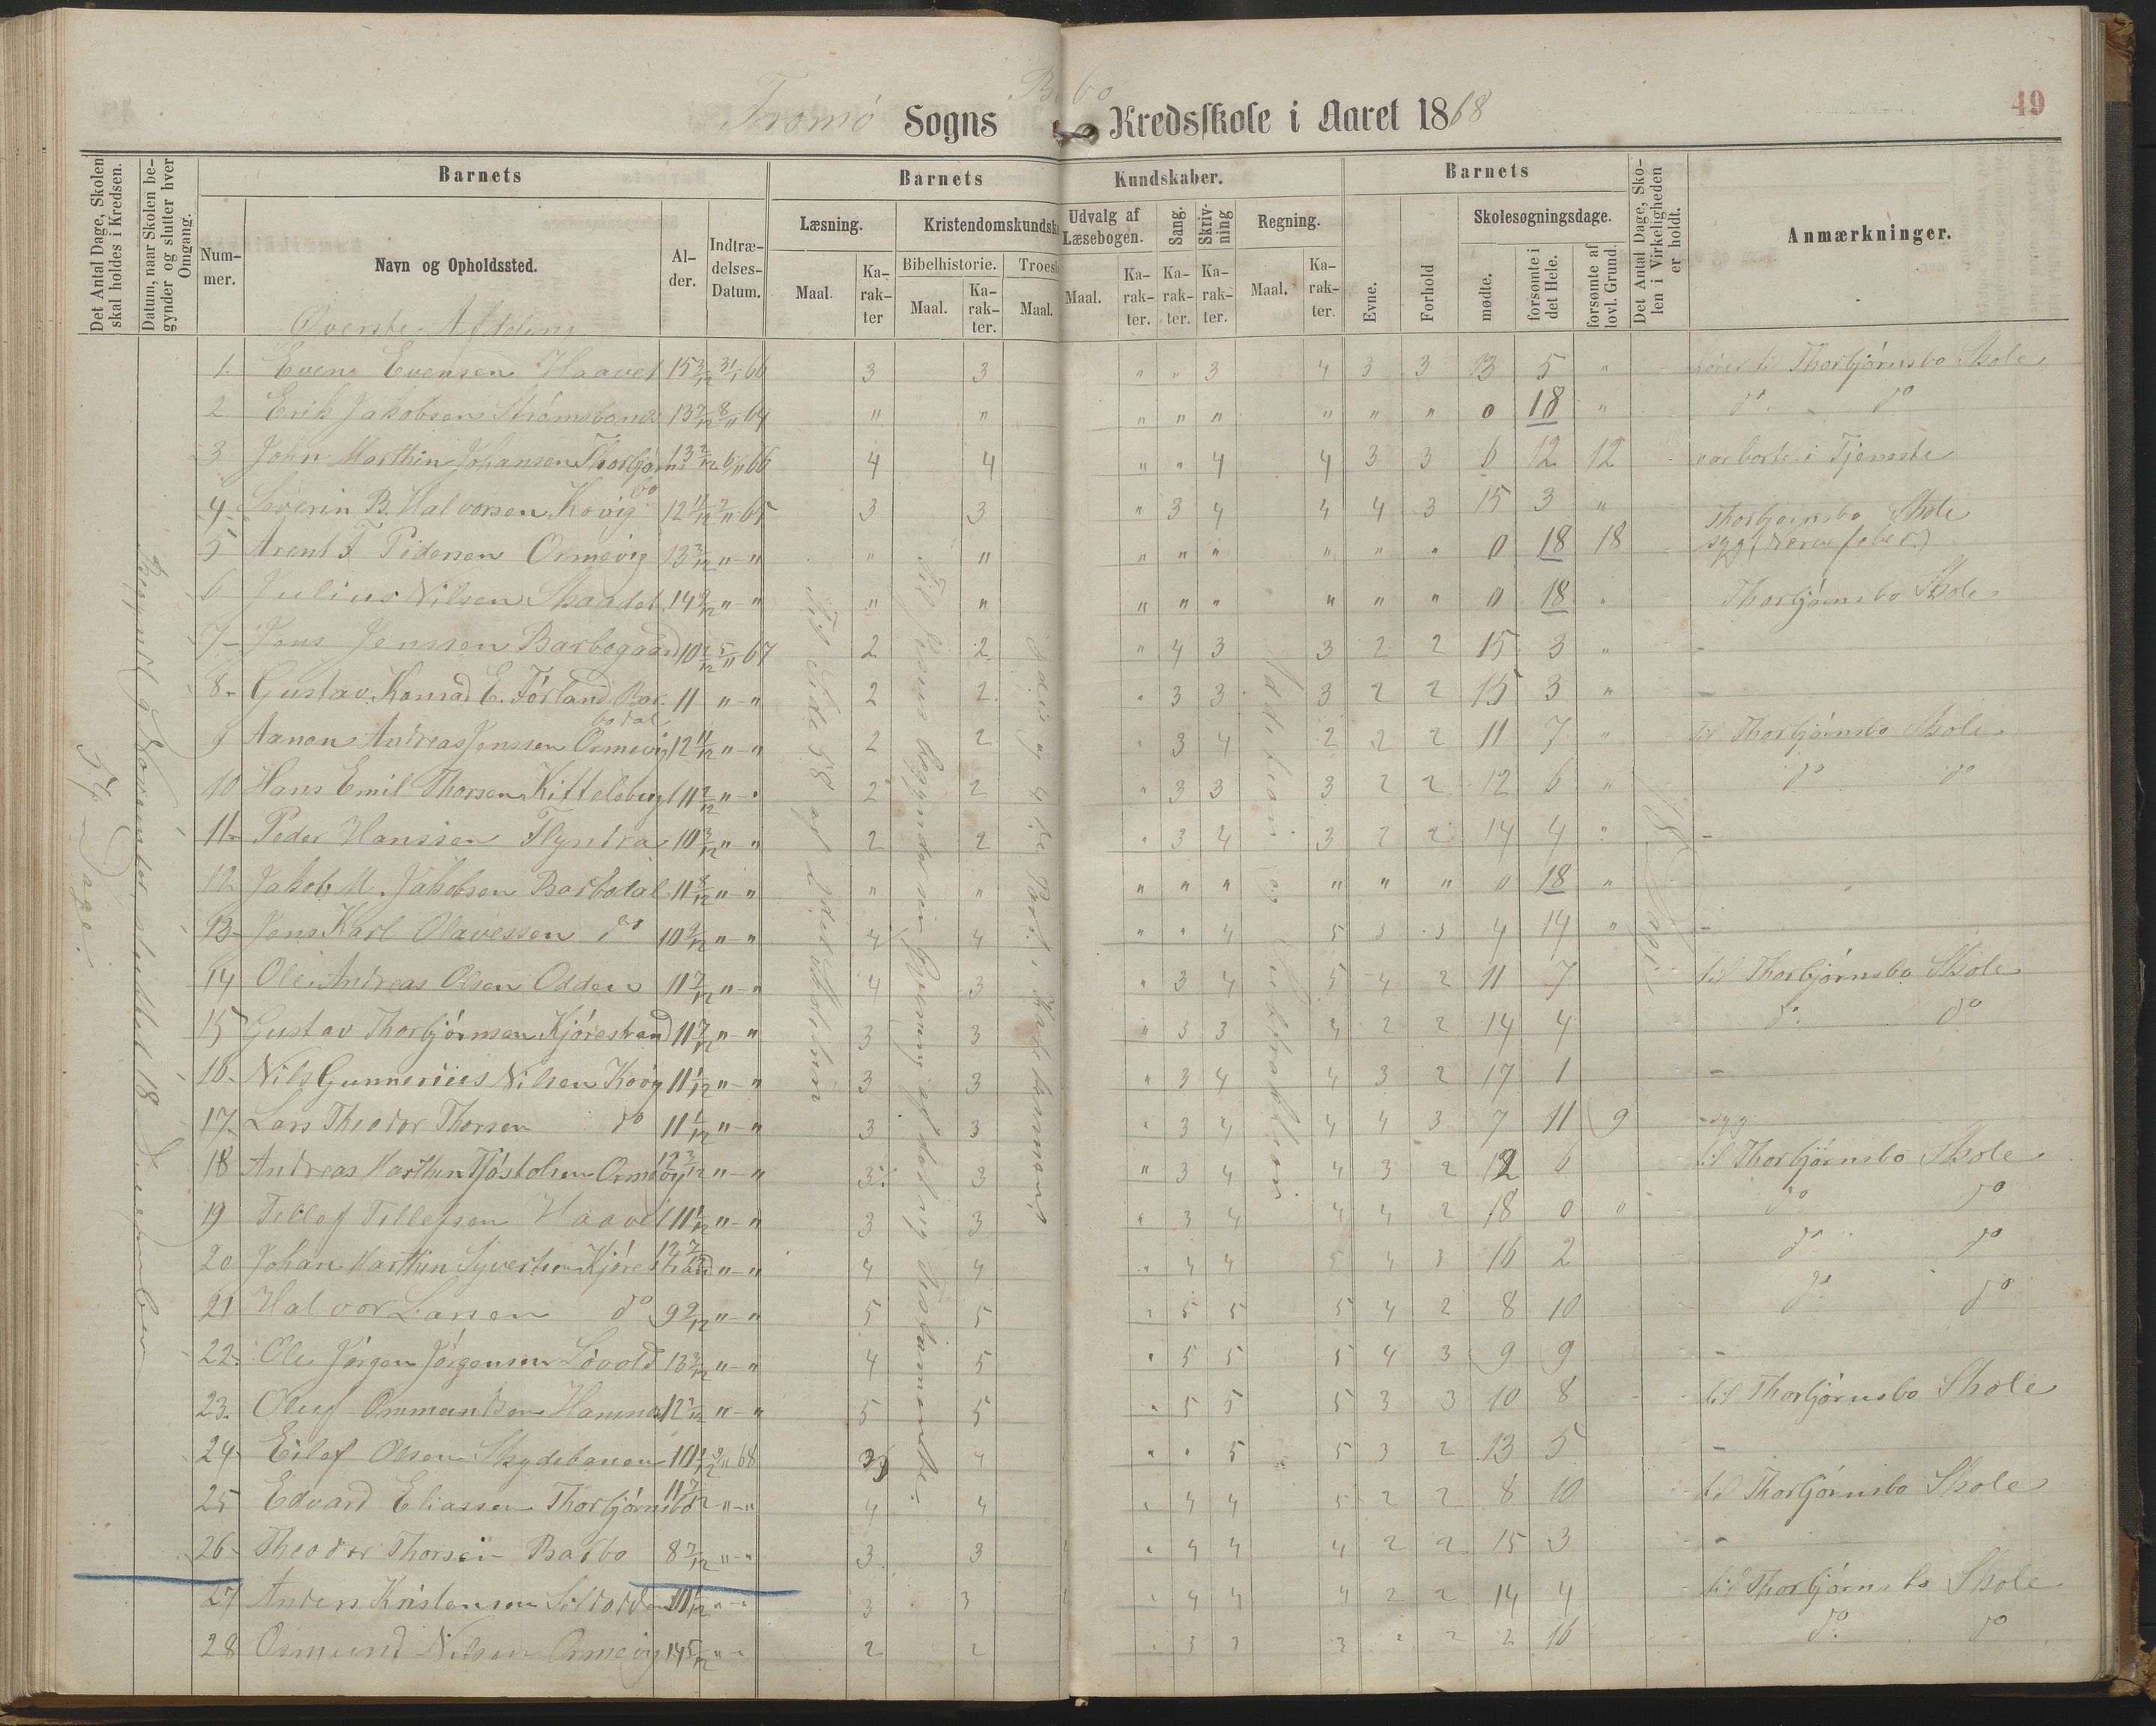 Barbo
Tromø Sogns Kredsskole i Aaret 1868
49
Det Antal Dage, Skolen skal holdes i Kredsen.
Datum, naar Skolen begynder og slutter hver Omgang.
Barnets
Num-mer.
Navn og Opholdssted.
Al-der.
Indtræ-delses-Datum.
Barnets Kundskaber.
Læsning.
Maal.
Ka-rak-ter
Kristendomskundska
Bibelhistorie.
Maal.
Ka-rak-ter.
Troes
Maal.
Udvalg af Læsebogen.
Maal.
Ka-rak-ter.
Sang.
Ka-rak-ter.
Skriv-ning
Ka-rak-ter.
Regning.
Maal.
Ka-rak-ter.
Barnets
Evne.
Forhold
Skolesøgningsdage.
mødte.
forsømte i det Hele.
forsømte af lovl. Grund.
Det Antal Dage, Sko-len i Virkeligheden er holdt.
Anmærkninger.
Øverste Afdeling
1. Even Evensen Haavet 15 3/12 31/1 66 3 3 " " 3 4 3 3 13 5 " hører til Thorbjørnsbo Skole
2 Erik Jakobsen Strømsbones 13 7/12 8/11 64 " " " " " " " " 0 18 " do do
3 John Marthin Johansen Thorbjørnsbo 13 2/12 6/11 66 4 4 " " 4 4 3 3 6 12 12 var borte i Tjeneste
4. Severin B. Halvorsen Kovig 12 11/12 7/11 65 3 3 " 3 4 4 4 3 15 3 " Thorbjørnsbo Skole
5 Arent F Pedersen Ormevig 13 3/12 " - " " " " " " " " " 0 18 18 syg (Nervefeber)
6 Julius Nilsen Skaadel 14 9/12 " - " " " " " " " " " 0 18 " Thorbjørnsbo Skole
7 - Jens Jenssen Barbogaard 10 2/12 5/11 67 2 2 " 4 3 3 2 2 15 3 " -
8 - Gustav Konrad E. Førland Barbodal 11 " - " 2 2 " 3 3 3 2 2 15 3 " -
9 Aanon Andreas Jenssen Ormevig 12 11/12 " - " 2 2 " 3 4 2 2 2 11 7 " til Thorbjørnsbo Skole
10 Hans Emil Thorsen Kittelsbugt 11 2/12 " - " 2 2 " 3 3 3 2 2 12 6 " do do
11 - Peder Hanssen Flyndra 10 3/12 " - " 2 2 " 3 4 3 2 2 14 4 " -
12 Jakob M. Jakobsen Barbodal 11 8/12 " - " " " " " " " " " 0 18 "
13 - Jens Karl Olavessen do 10 9/12 " - " 4 4 " " 4 5 3 3 4 14 " -
14 Ole Andreas Olsen Odden 11 7/12 " - " 4 3 " 3 4 5 4 2 11 7 til Thorbjørnsbo Skole
15 Gustav Thorbjørnsen Kjørestrand 11 7/12 " - " 3 3 " 3 3 4 2 2 14 4 do do
16 - Nils Gunnerius Nilsen Kovig 11 1/12 " - " 3 3 " 3 4 4 3 2 17 1 -
17 Lars Theodor Thorsen do 11 1/12 " - " 3 3 " 3 4 4 4 3 7 11 9 - syg
18 Andreas Marthin Tjøstolsen Ormevig 12 3/12 " - " 3 3 " 3 4 4 3 2 12 6 til Thorbjørnsbo Skole
19 Tellef Tellefsen Haavet 11 1/12 " - " 3 3 " 3 4 4 4 2 18 0 0 do do
20 Johan Marthin Syvertsen Kjørestrand 12 7/12 " - " 4 4 " 4 4 5 4 3 16 2 do do
21 Halvor Larsen do 9 9/12 " - " 5 5 " 5 5 5 4 2 8 10 do do
22. Ole Jørgen Jørgensen Løvold 13 3/12 " - " 4 5 " 5 5 5 4 3 9 9 -
23. Oluf Ommundsen 12 " - " 5 5 " 5 5 5 3 3 10 8 til Thorbjørnsbo Skole
24 Eilef Olsen Skydebanen 10 68 3 4 " " 5 5 3 2 13 5 -
25 Edvard Eliassen Thorbjørnsbo 11 7/12 " - " 4 4 " 4 4 5 2 2 8 10 til Thorbjørnsbo Skole
26 Theodor Thorsen Barbo 8 7/12 " - " 3 3 " 4 4 4 2 2 15 3 -
27 Anders Kristensen 3 3 " 4 4 4 2 2 14 4 til Thorbjørnsbo Skole
28 Osmund Nilsen Ormevig 14 5/12 " - " 2 2 " 3 3 3 2 2 2 16 do do
54 Dage.
Begyndt November, sluttet 18 December
Til Side 58 af 2det Skoletrin
Til Jesus begynder sin Gjerning af det nye Testamente
Addition og Subtraktion
18 Dage.